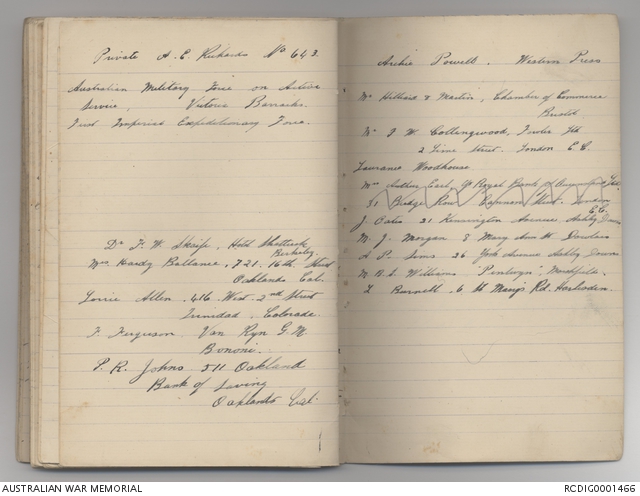 Private A. E. Rickards No 643.
Australian Military Force on Active
Service, Victoria Barracks.
First Imperial Expeditionary Force.
Dr F. W. Skaife, Hotel Shattuck
Berkeley
Mrs Hardy Ballance, 721. 16th Street
Oakland Cal.
Lorrie Allen. 416 West. 2nd Street
Trinidad, Colorado.
F. Ferguson, Van Ryn G. M.
Bononi.
P. R. Johns 511 Oakland
Bank of Saving
Oakland Cal.
Archie Powell. Western Press
Mr Hilliard & Martin, Chamber of Commerce
Bristol.
Mr J. W. Collingwood,
2 Lime Street. London E.C.
Laurance Woodhouse.
Mrs Arthur Earl Royal Bank of
31 Budge Row Cannon Street. London
E.C.
J. Cato 21 Kensington Avenue Ashley Down
M. J. Morgan 8 Mary Ann St. Dowlais
A P. Sims 26 York Avenue Ashley Down
M. A. L. Williams "Penlwyn",
L Burnell. 6 St Mary's Rd. Harlesden.
AUSTRALIAN WAR MEMORIAL
RCDIG0001466